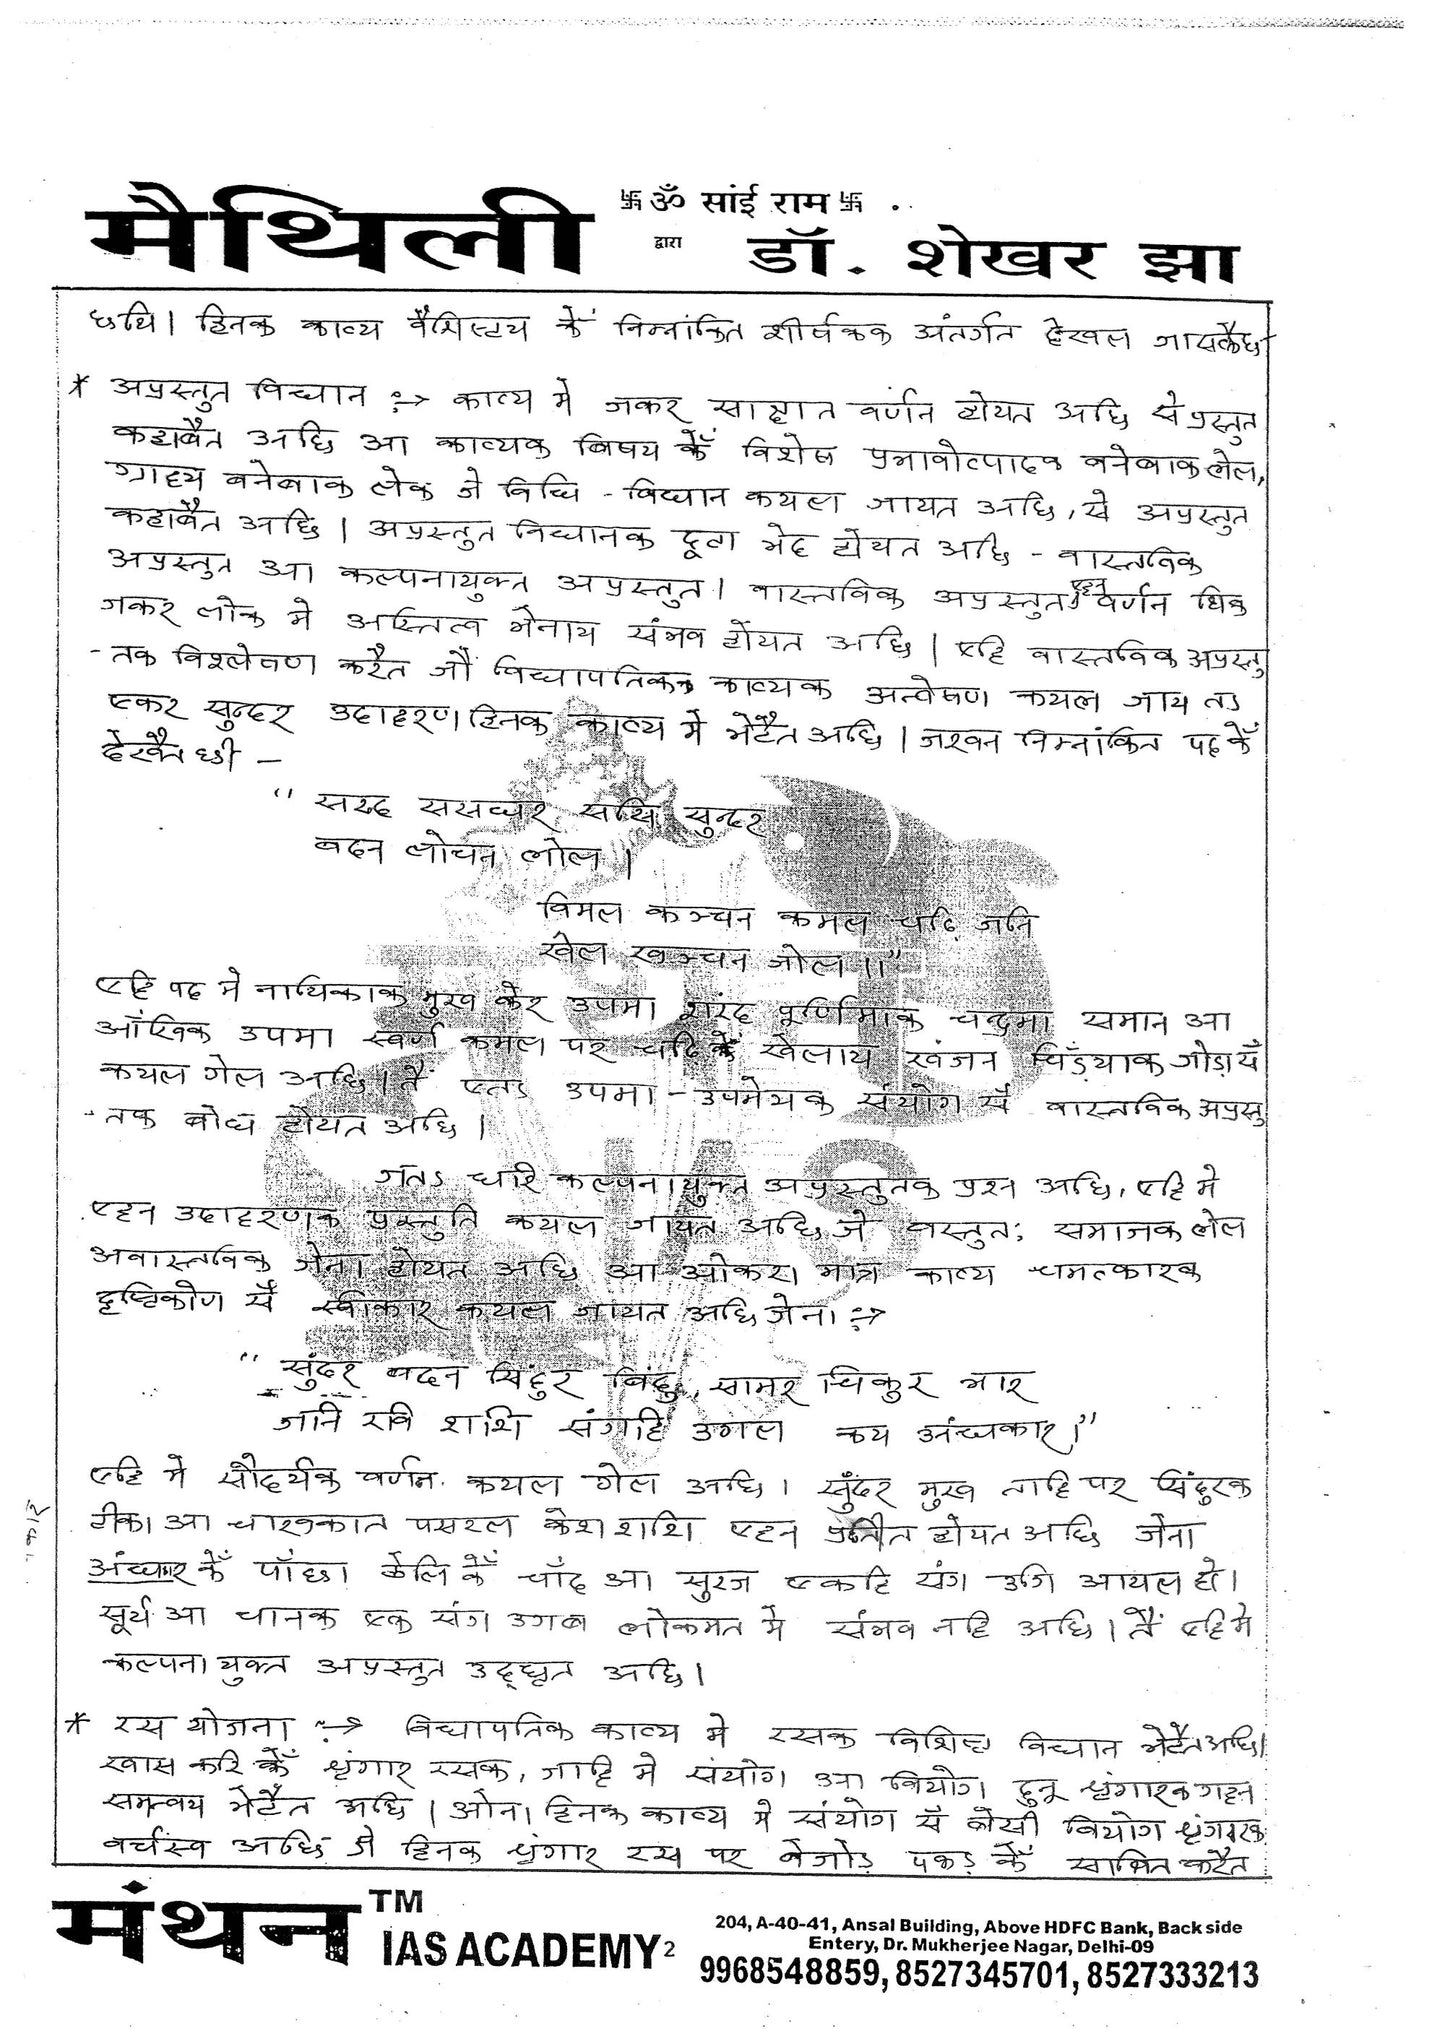 मैथिली
卐 ॐ सांई राम 卐
द्वारा
डॉ. शेखर झा
छथि। हिनक काव्य वैशिस्टय कें निम्नांकित शीर्षकक अंतर्गत देखल जासकैछ
* अप्रस्तुत विधान :→ काव्य मे जकर साक्षात वर्णन होयत अछि से प्रस्तुत
कहाबैत अछि आ काव्यक विषय कें विशेष प्रभावोत्पादक बनेबाक लेल,
ग्राह्य बनेबाक लेल जे विधि - विधान कयल जायत अछि, से अप्रस्तुत
कहाबैत अछि। अप्रस्तुत विधानक दूटा भेद होयत अछि - वास्तविक
अप्रस्तुत आ कल्पनायुक्त अप्रस्तुत। वास्तविक अप्रस्तुत एहन वर्णन थिक
जकर लोक मे अस्तित्व भेनाय संभव होयत अछि। एहि वास्तविक अप्रस्तु
-तक विश्लेषण करैत जौं विद्यापतिक काव्यक अन्वेषण कयल जाय तऽ
एकर सुन्दर उदाहरण हिनक काव्य मे भेटैत अछि। जखन निम्नांकित पद कें
देखैत छी -
" सरद ससधर सरि सुन्दर
बदन लोचन लोल।
विमल कञ्चन कमल चढ़ि जनि
खेल खञ्चन जोल॥"
एहि पद मे नायिकाक मुख केर उपमा शरद पूर्णिमाक चन्द्रमा समान आ
आँखिक उपमा स्वर्ण कमल पर चढि कें खेलाय खंजन चिड़ियाक जोड़ा सँ
कयल गेल अछि। तैं एतऽ उपमा - उपमेयक संयोग सँ वास्तविक अप्रस्तु
-तक बोध होयत अछि।
जतऽ धरि कल्पनायुक्त अप्रस्तुतक प्रश्न अछि, एहि मे
एहन उदाहरणक प्रस्तुति कयल जायत अछि जे वस्तुत: समाजक लेल
अवास्तविक जेना होयत अछि आ ओकरा मात्र काव्य चमत्कारक
दृष्टिकोण सँ स्वीकार कयल जायत अछि जेना :→
" सुंदर बदन सिंदुर बिंदु, सामर चिकुर भार
जनि रवि शशि संगहि उगल कय अंधकार।"
एहि मे सौंदर्यक वर्णन कयल गेल अछि। सुंदर मुख ताहि पर सिंदुरक
टीका आ चारूकात पसरल केश राशि एहन प्रतीत होयत अछि जेना
अंधकार कें पाँछा ठेलि कें चाँद आ सुरज एकहि संग उगि आयल हो।
सूर्य आ चानक एक संग उगब लोकमत मे संभव नहि अछि। तैं एहि मे
कल्पना युक्त अप्रस्तुत उद्धृत अछि।
* रस योजना :→ विद्यापतिक काव्य मे रसक विशिष्ट विधान भेटैत अछि।
खास करि कें श्रृंगार रसक, जाहि मे संयोग आ वियोग दुनू श्रृंगारक गहन
समन्वय भेटैत अछि। ओना हिनक काव्य मे संयोग सँ बेसी वियोग श्रृंगारक
वर्चस्व अछि जे हिनक श्रृंगार रस पर बेजोड़ पकड़ कें साबित करैत
मंथन TM
IAS ACADEMY 2
204, A-40-41, Ansal Building, Above HDFC Bank, Back side
Entery, Dr. Mukherjee Nagar, Delhi-09
9968548859, 8527345701, 8527333213
IAS